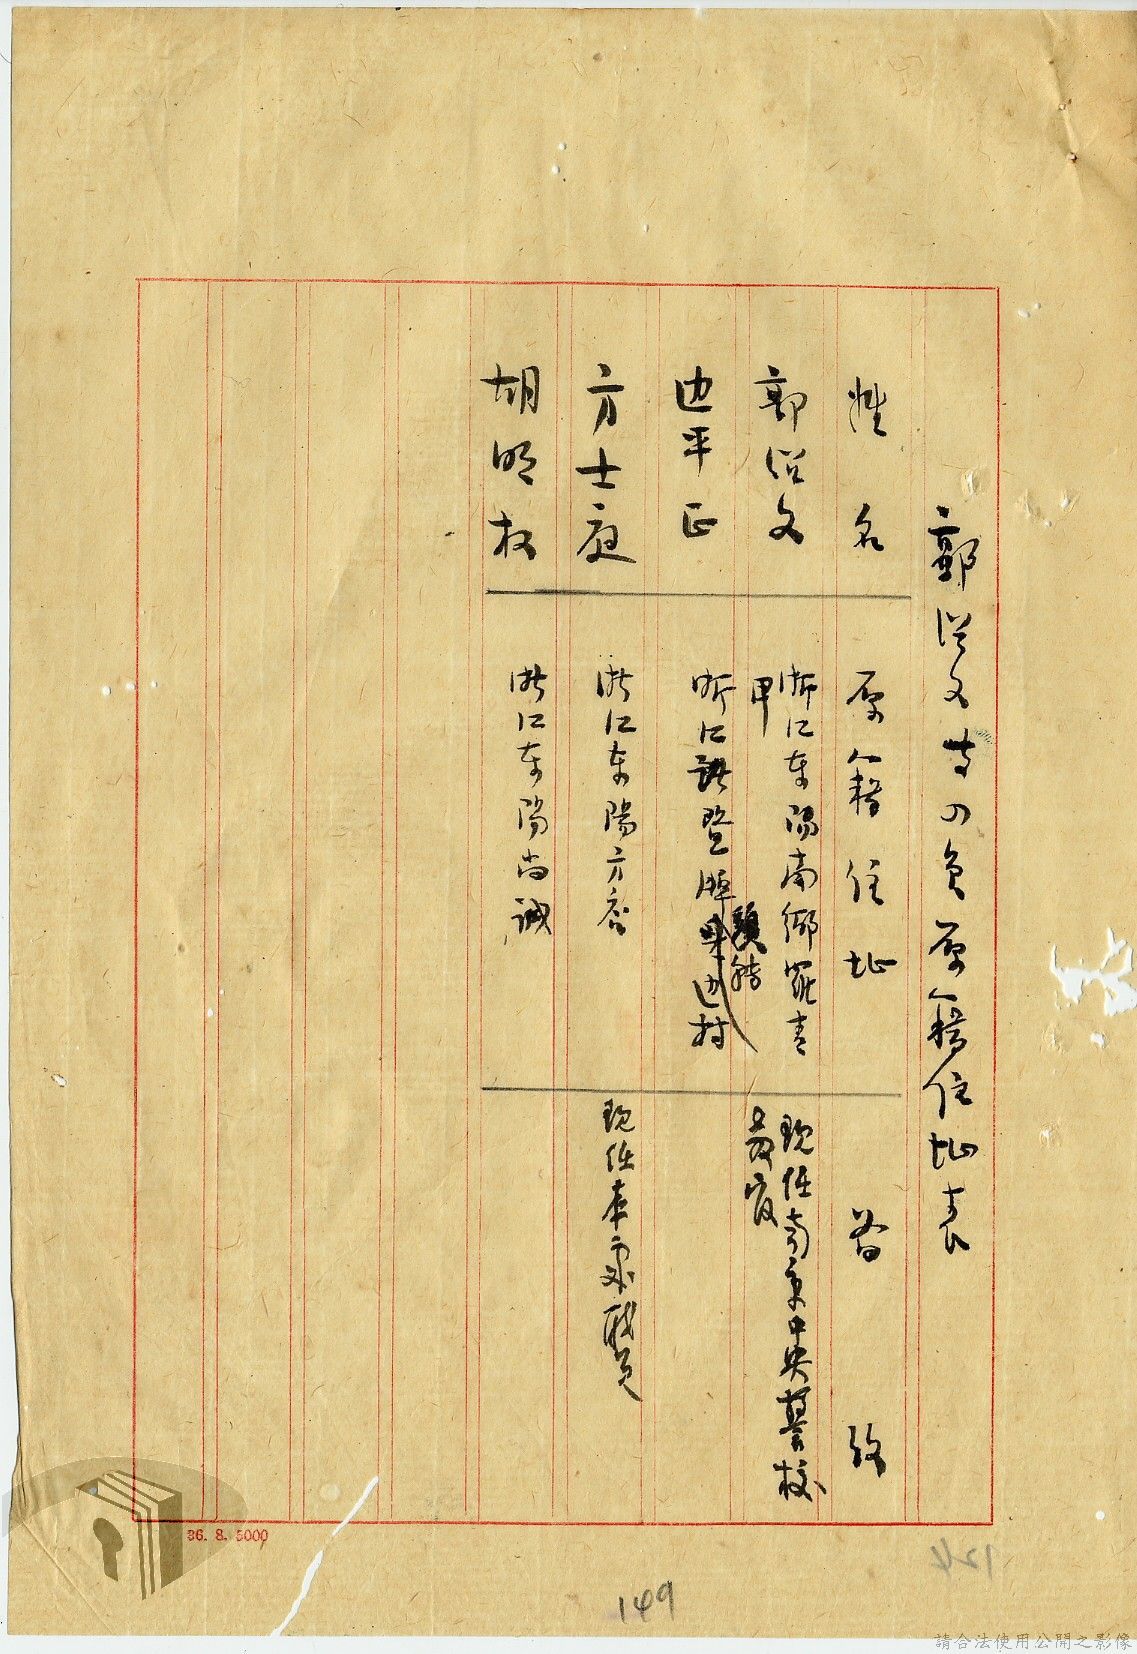 郭從文等四員原籍住址表
姓名 原籍住址 备攷
郭從文 浙江东陽南鄉羅青甲 現任南京中央警校教官
边平正 浙江諸暨牌頭轉边村
方士庭 浙江东陽方宅 現任本处職员
胡明权 浙江东陽尚誠
36. 8. 5000
149
124
請合法使用公開之影像